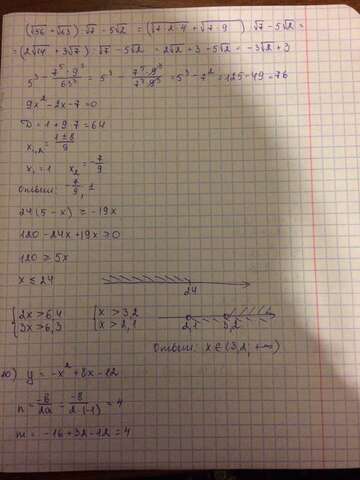 (√56 + √63) : √7 - 5√2 = (√7·2·4 + √7·9) : √7 - 5√2 =
= (2√14 + 3√7) : √7 - 5√2 = 2√2 + 3 - 5√2 = -3√2 + 3
5³ - 7⁵·9³/63³ = 5³ - 7⁵·9³/7³·9³ = 5³ - 7² = 125 - 49 = 76
9x² - 2x - 7 = 0
D = 1 + 9·7 = 64
x₁,₂ = 1±8/9
x₁ = 1 x₂ = -7/9
Ответ: -7/9, 1
24(5 - x) = -19x
120 - 24x + 19x ≥ 0
120 ≥ 5x
x ≤ 24
24
{2x > 6,4 {x > 3,2
{3x > 6,3 {x > 2,1
2,1 3,2
Ответ: x ∈ (3,2, +∞)
y = -x² + 8x - 12
n = -b/2a = -8/2·(-1) = 4
m = -16 + 32 - 12 = 4